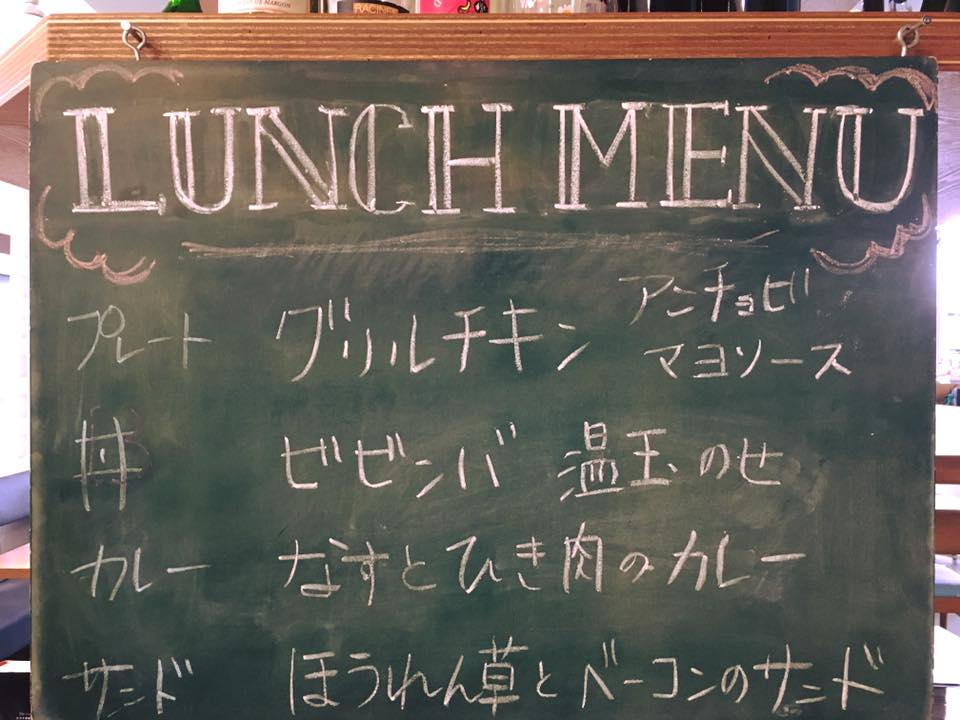 LUNCH MENU
プレート グリルチキン アンチョビ
マヨソース
丼 ビビンバ 温玉のせ
カレー なすとひき肉のカレー
サンド ほうれん草とベーコンのサンド